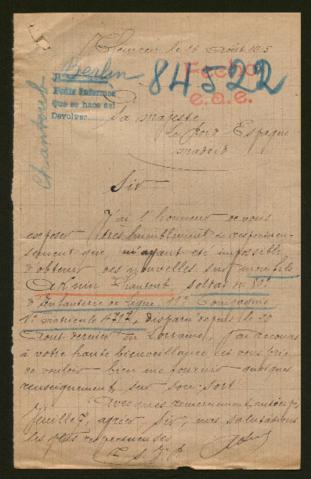 le 16 Août 1915
Berlin
84522
Fecha
e.a.e.
Pidis Informes
que se hace del
Devolver
Chantoub
Sa majesté
Le Roi Espagne
Madrid
Sir
J'ai l'honneur de vous
exposer très humblement et respectueu-
sement que m'ayant été impossible
d'obtenir des nouvelles sur mon fils
soldat
d'Infanterie de ligne 11e Compagnie
Nº matricule 4717, disparu depuis le 20
Août dernier en Lorraine, j'ai recours
à votre haute bienveillance et vous prie
de vouloir bien me fournir quelques
renseignement sur son sort
Avec mes remerciement anticip,
Veuillez, agréer Sir, mes salutations
les plus respectueuses